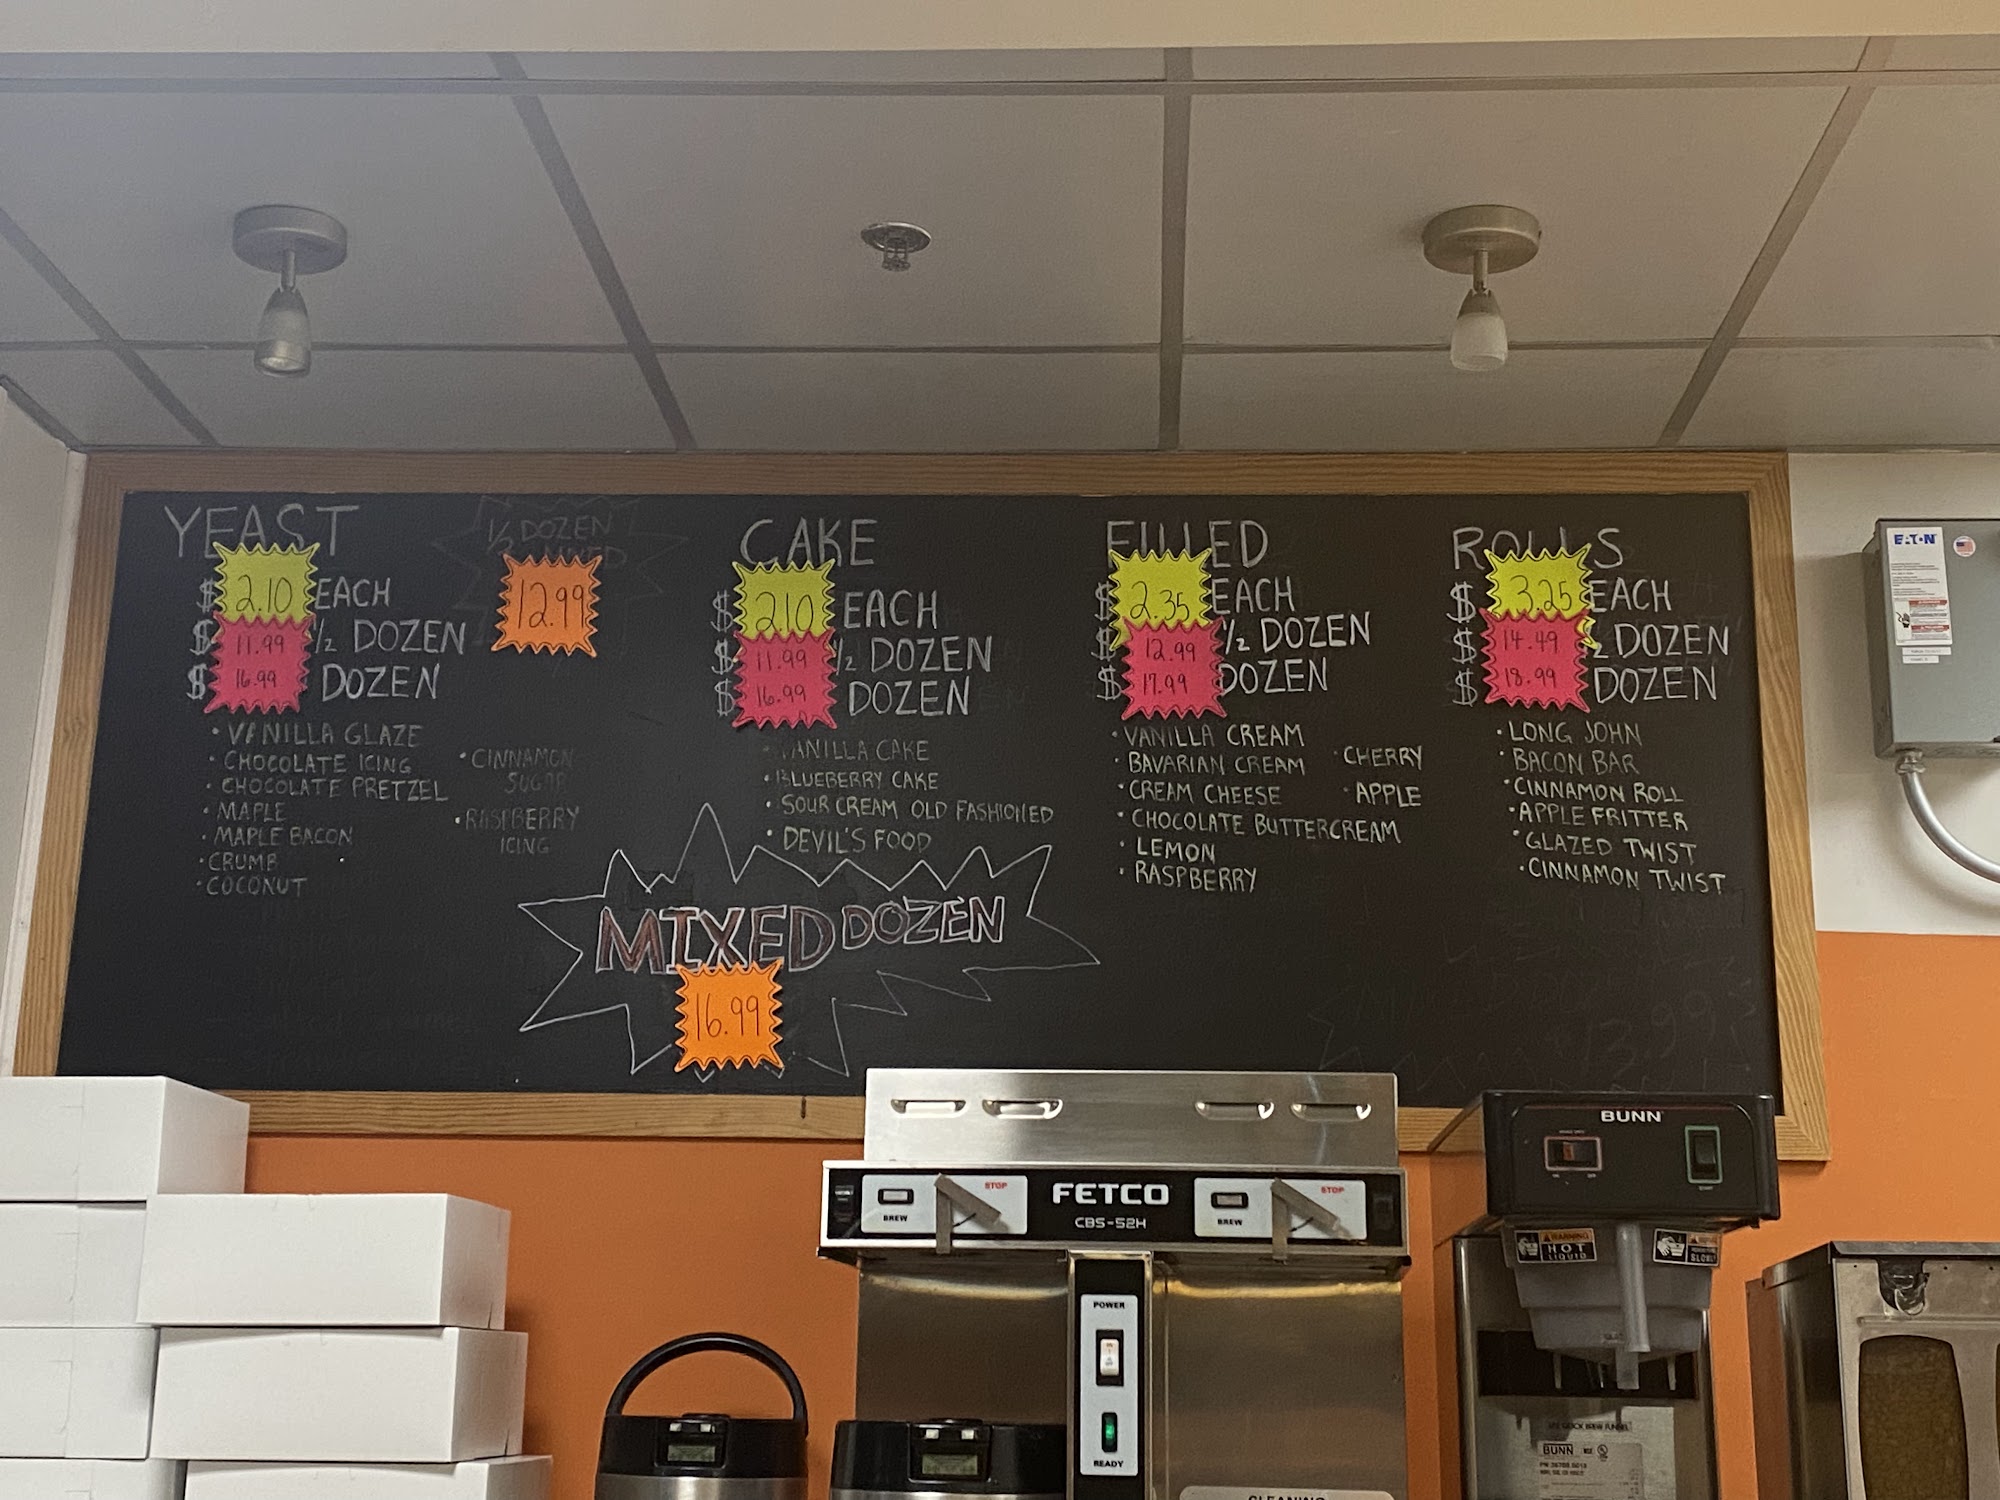 YEAST
$ 2.10 EACH
$ 11.99 ½ DOZEN
$ 16.99 DOZEN
• VANILLA GLAZE
• CHOCOLATE ICING
• CHOCOLATE PRETZEL
• MAPLE
• MAPLE BACON
• CRUMB
• COCONUT
• CINNAMON
SUGAR
• RASPBERRY
ICING
½ DOZEN
12.99
CAKE
$ 210 EACH
$ 11.99 ½ DOZEN
$ 16.99 DOZEN
• VANILLA CAKE
• BLUEBERRY CAKE
• SOUR CREAM OLD FASHIONED
• DEVIL'S FOOD
MIXED DOZEN
16.99
FILLED
$ 2.35 EACH
$ 12.99 ½ DOZEN
$ 17.99 DOZEN
• VANILLA CREAM
• BAVARIAN CREAM
• CREAM CHEESE
• CHOCOLATE BUTTERCREAM
• LEMON
• RASPBERRY
• CHERRY
• APPLE
ROLLS
$ 3.25 EACH
$ 14.49 ½ DOZEN
$ 18.99 DOZEN
• LONG JOHN
• BACON BAR
• CINNAMON ROLL
• APPLE FRITTER
• GLAZED TWIST
• CINNAMON TWIST
13.99
EATON
FETCO
CBS-52H
BREW
STOP
BREW
STOP
POWER
READY
CLEANING
BUNN
WARNING
HOT
LIQUID
SLOWLY
BUNN